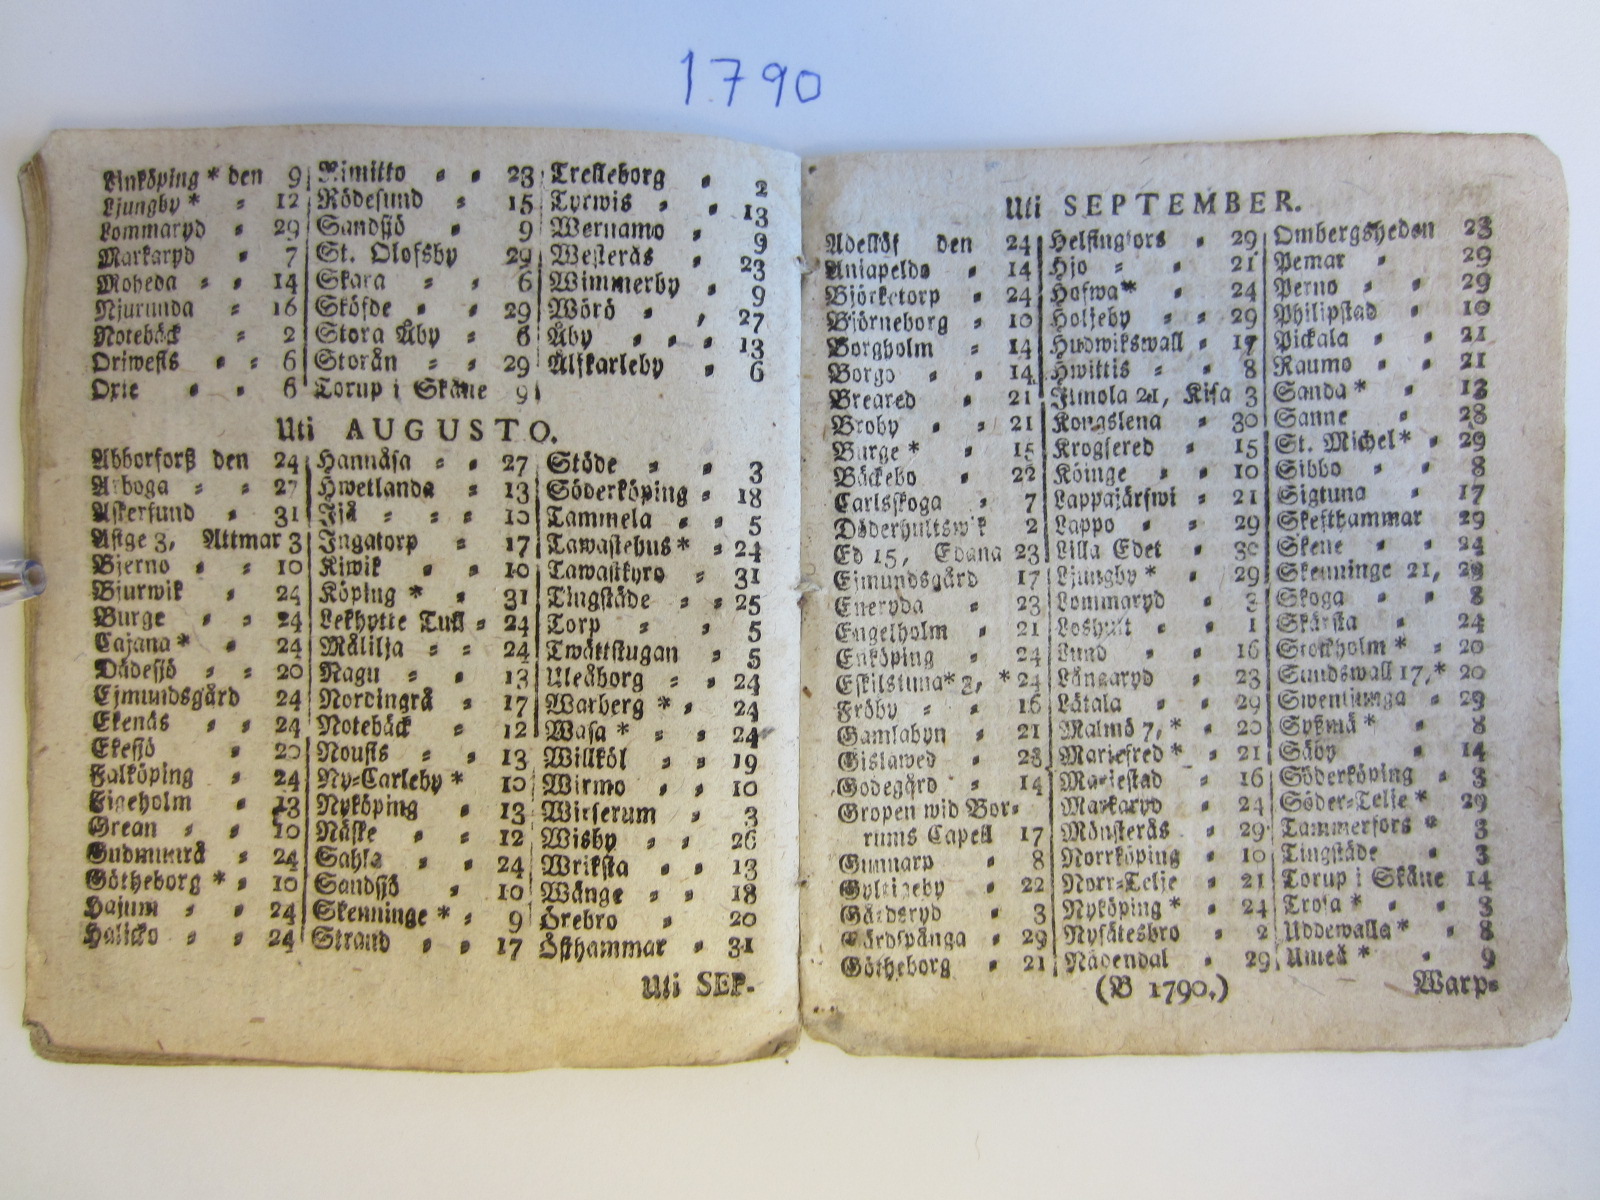 1790
Linköping * den 9
Ljungby * 12
Lommaryd 29
Markaryd 7
Moheda 14
Njurunda 16
Notebäck 2
Oriwesls 6
Oxie 6
Rimitto 23
Rödesund 15
Sandsjö 9
St. Olofsby 29
Skara 6
Sköfde 29
Stora Åby 6
Storån 29
Torup i Skåne 9
Trelleborg 2
Tyrwis 13
Wernamo 9
Westerås 23
Wimmerby 9
Wörö 27
Åby 13
Älfkarleby 6
Uti AUGUSTO.
Abborforß den 24
Arboga 27
Askersund 31
Astge 3, Attmar 3
Bjerno 10
Bjurwik 24
Burge 24
Cajana * 24
Dädesjö 20
Ejmundsgård 24
Ekenäs 24
Ekesjö 20
Falköping 24
Figeholm 13
Grean 10
Gudmundrå 24
Götheborg * 10
Hajum 24
Halicko 24
Hannåsa 27
Hwetlanda 13
Ijå 10
Ingatorp 17
Kiwik 10
Köping * 31
Lekhytte Tull 24
Målilja 24
Nagu 13
Nordingrå 17
Notebäck 12
Nousis 13
Ny-Carleby * 10
Nyköping 13
Näske 12
Sahla 24
Sandsjö 10
Skenninge * 9
Strand 17
Stöde 3
Söderköping 18
Tammela 5
Tawastehus * 24
Tawastkyro 31
Tingstäde 25
Torp 5
Twättstugan 5
Uleåborg 24
Warberg * 24
Wasa * 24
Willköl 19
Wirmo 10
Wirserum 3
Wisby 26
Wriksta 13
Wänge 18
Örebro 20
Östhammar 31
Uti SEP.
Uti SEPTEMBER.
Adellöf den 24
Aniapeldo 14
Björketorp 24
Björneborg 10
Borgholm 14
Borgo 14
Breared 21
Broby 21
Burge * 15
Bäckebo 22
Carlsskoga 7
Döderhultswik 2
Ed 15, Edana 23
Ejmundsgård 17
Eneryda 23
Engelholm 21
Enköping 24
Eskilstuna * 3, * 24
Fröby 16
Gamlabyn 21
Gislawed 28
Godegård 14
Gropen wid Bor-
rums Capell 17
Gunnarp 8
22
Gårdsryd 3
Gärdspånga 29
Götheborg 21
Helsingfors 29
Hjo 21
Hofwa * 24
Holjeby 29
Hudwikswall 17
Hwittis 8
Ilmola 21, Kisa 3
Kongslena 30
Krogsered 15
Köinge 10
Lappajärfwi 21
Lappo 29
Lilla Edet 30
Ljungby * 29
Lommaryd 3
Loshult 1
Lund 16
Långaryd 23
Lätala 29
Malmö 7, * 20
Mariefred * 21
Mariestad 16
Markaryd 24
Mönsterås 29
Norrköping 10
Norr-Telje 21
Nyköping * 24
Nysätesbro 2
Nådendal 29
Ombergsheden 23
Pemar 29
Perno 29
Philipstad 10
Pickala 21
Raumo 21
Sanda * 13
Sanne 28
St. Michel * 29
Sibbo 8
Sigtuna 17
Skefthammar 29
Skene 24
Skenninge 21, 29
Skoga 8
Skärsta 24
Stockholm * 20
Sundswall 17, * 20
Swenljunga 29
Syßmä * 8
Säby 14
Söderköping 3
Söder-Telje * 29
Tammerfors * 3
Tingstäde 3
Torup i Skåne 14
Trosa * 8
Uddewalla * 8
Umeå * 9
(B 1790.)
Warp-